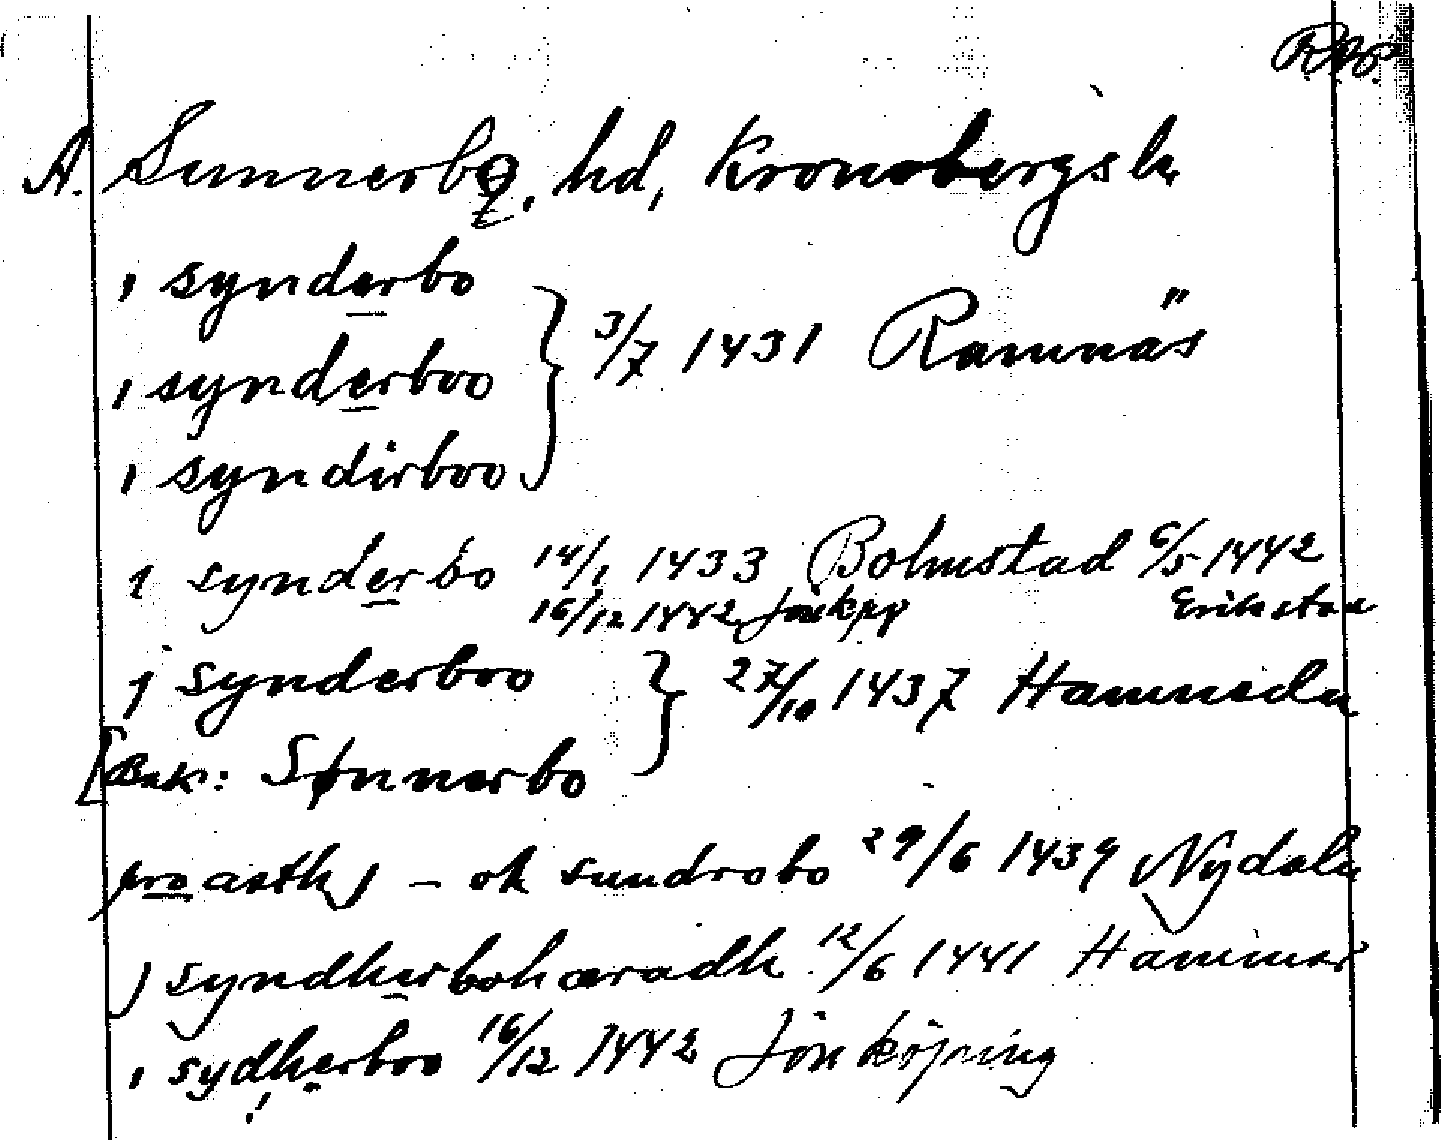 A. Sunnerbo, hd, Kronobergs l.
ı synderbo
ı synderboo } 3/7 1431 Ramnäs
ı syndirboo
ı synderbo 14/1 1433 Bolmstad 6/5 1442
16/12 1442 Jönkpg Erikstad
j synderboo } 27/10 1437 Hamneda
[Bak: Sønnerbo
proasth j – ok sundrobo 29/6 1439 Nydala
j syndherbohæradh 12/6 1441 Hammar
ı sydherboo 16/12 1442 Jönköping
!